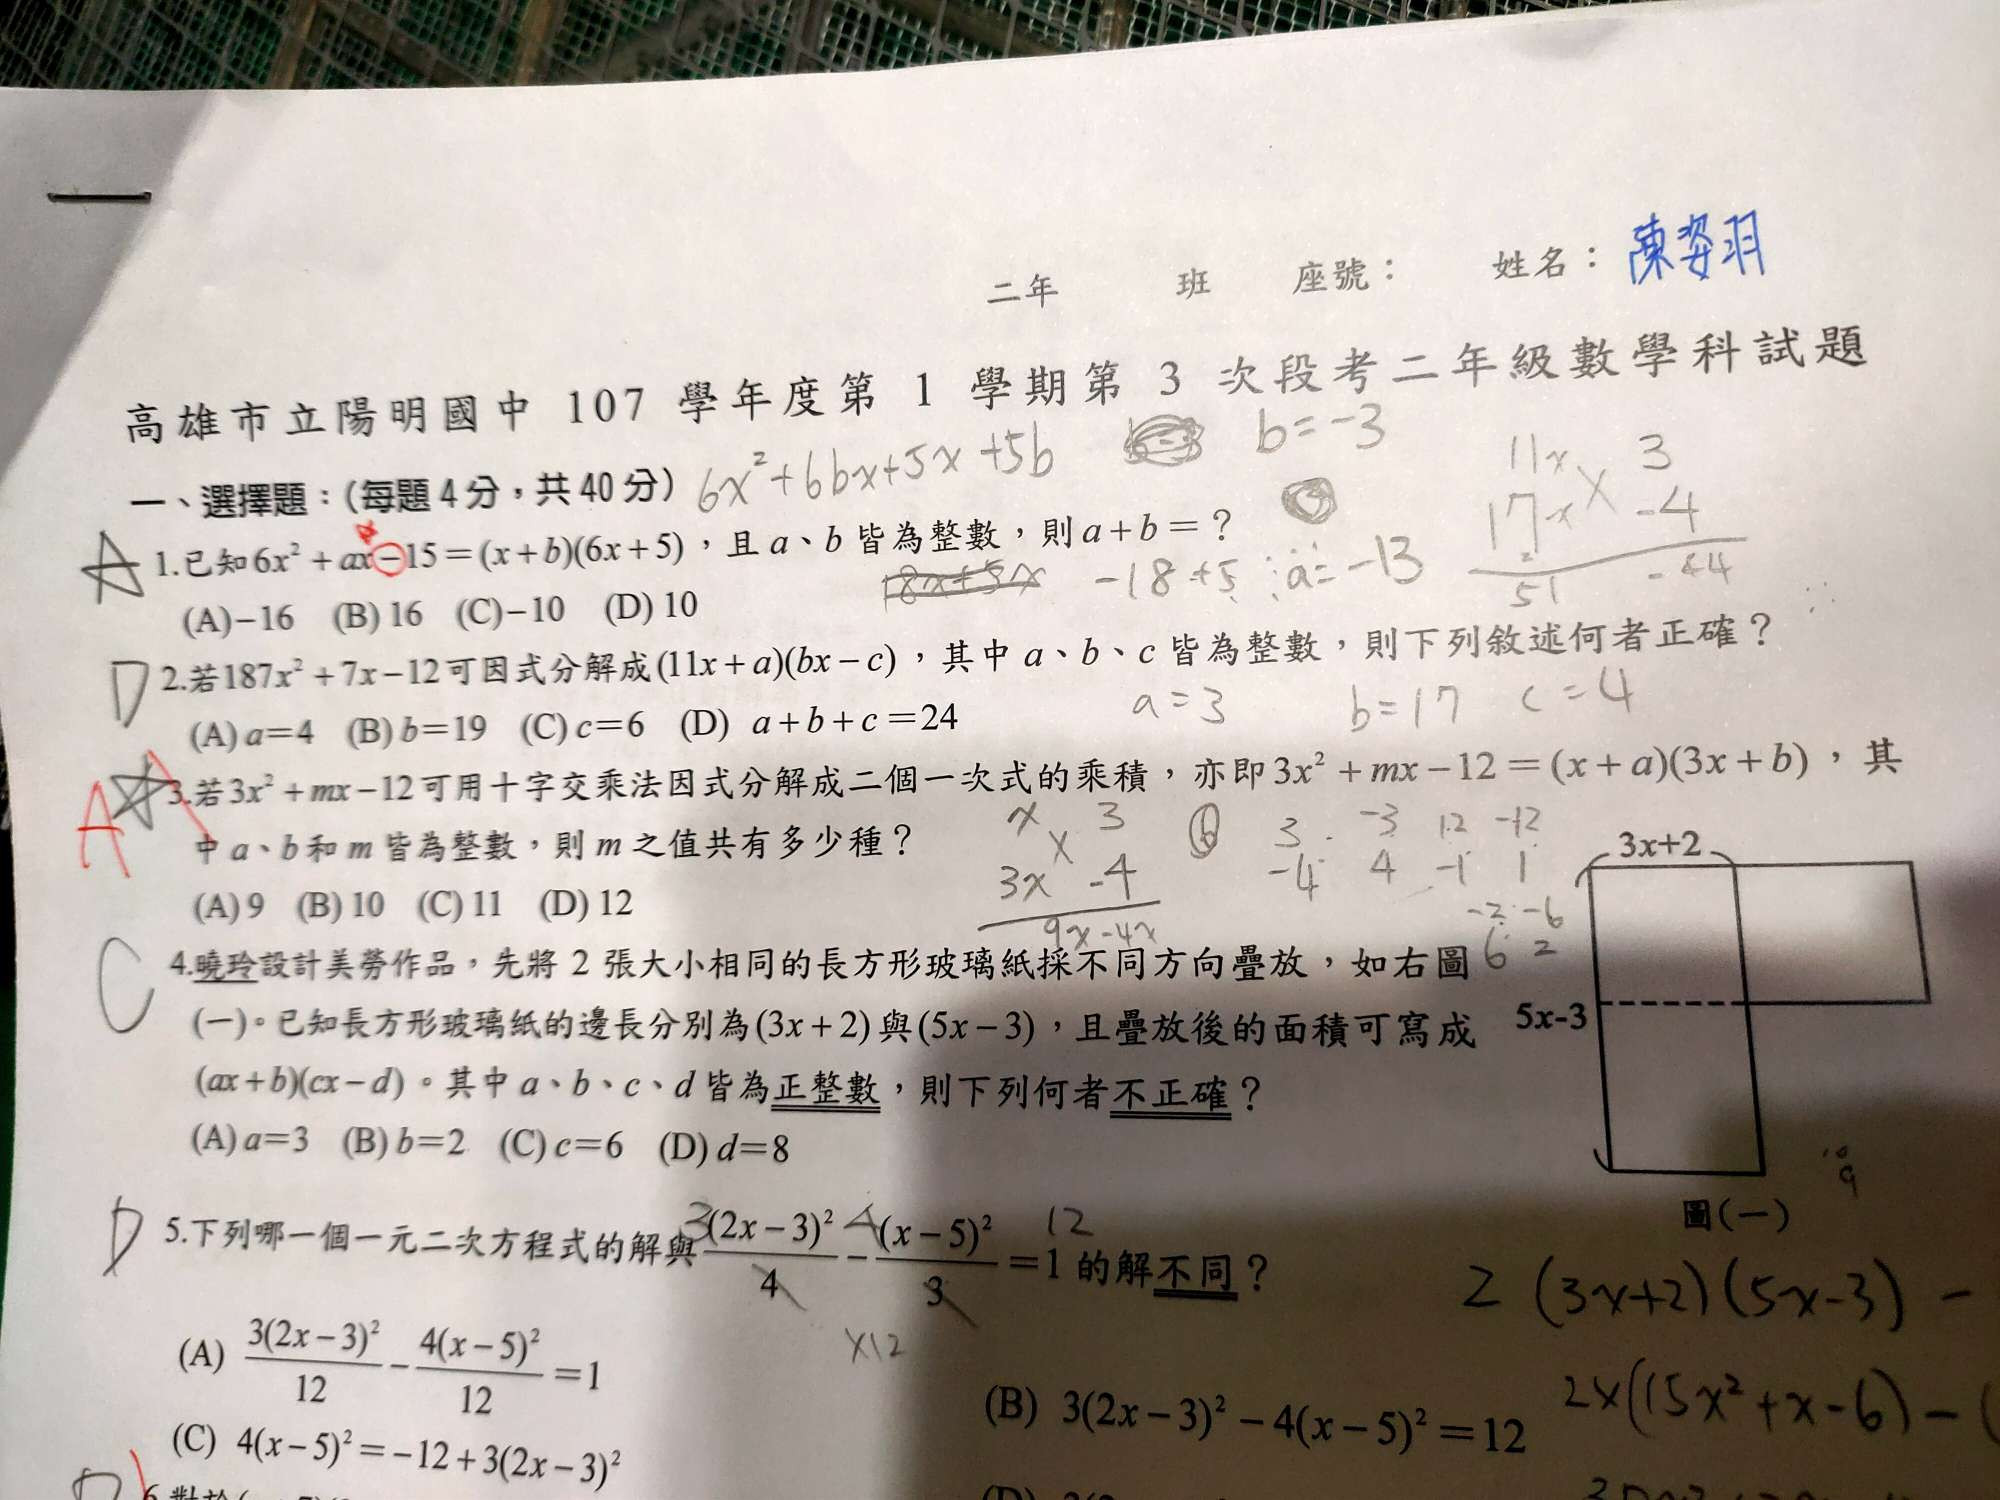 二年 班 座號： 姓名：陳姿羽
高雄市立陽明國中 107 學年度第 1 學期第 3 次段考二年級數學科試題
6x²+6bx+5x+5b b=-3
一、選擇題：(每題4分，共40分)
11x 3
17x -4
51 -44
A 1.已知6x²+ax-15=(x+b)(6x+5)，且a、b皆為整數，則a+b=？
18x+5x -18+5 ∴a=-13
(A)-16 (B)16 (C)-10 (D)10
D 2.若187x²+7x-12可因式分解成(11x+a)(bx-c)，其中a、b、c皆為整數，則下列敘述何者正確？
a=3 b=17 c=4
(A)a=4 (B)b=19 (C)c=6 (D) a+b+c=24
A 3.若3x²+mx-12可用十字交乘法因式分解成二個一次式的乘積，亦即3x²+mx-12=(x+a)(3x+b)，其
中a、b和m皆為整數，則m之值共有多少種？
x 3 3 -3 12 -12
3x -4 -4 4 -1 1
9x-4x -2 -6
6 2
(A)9 (B)10 (C)11 (D)12
3x+2
5x-3
圖(一)
C 4.曉玲設計美勞作品，先將 2 張大小相同的長方形玻璃紙採不同方向疊放，如右圖
(一)。已知長方形玻璃紙的邊長分別為(3x+2)與(5x-3)，且疊放後的面積可寫成
(ax+b)(cx-d)。其中a、b、c、d皆為正整數，則下列何者不正確？
(A)a=3 (B)b=2 (C)c=6 (D)d=8
D 5.下列哪一個一元二次方程式的解與 3(2x-3)²/4 - 4(x-5)²/3 =1 12 的解不同？
×12
2 (3x+2)(5x-3) -
(A) 3(2x-3)²/12 - 4(x-5)²/12 =1
(B) 3(2x-3)²-4(x-5)²=12
2×(15x²+x-6)-(
(C) 4(x-5)²=-12+3(2x-3)²